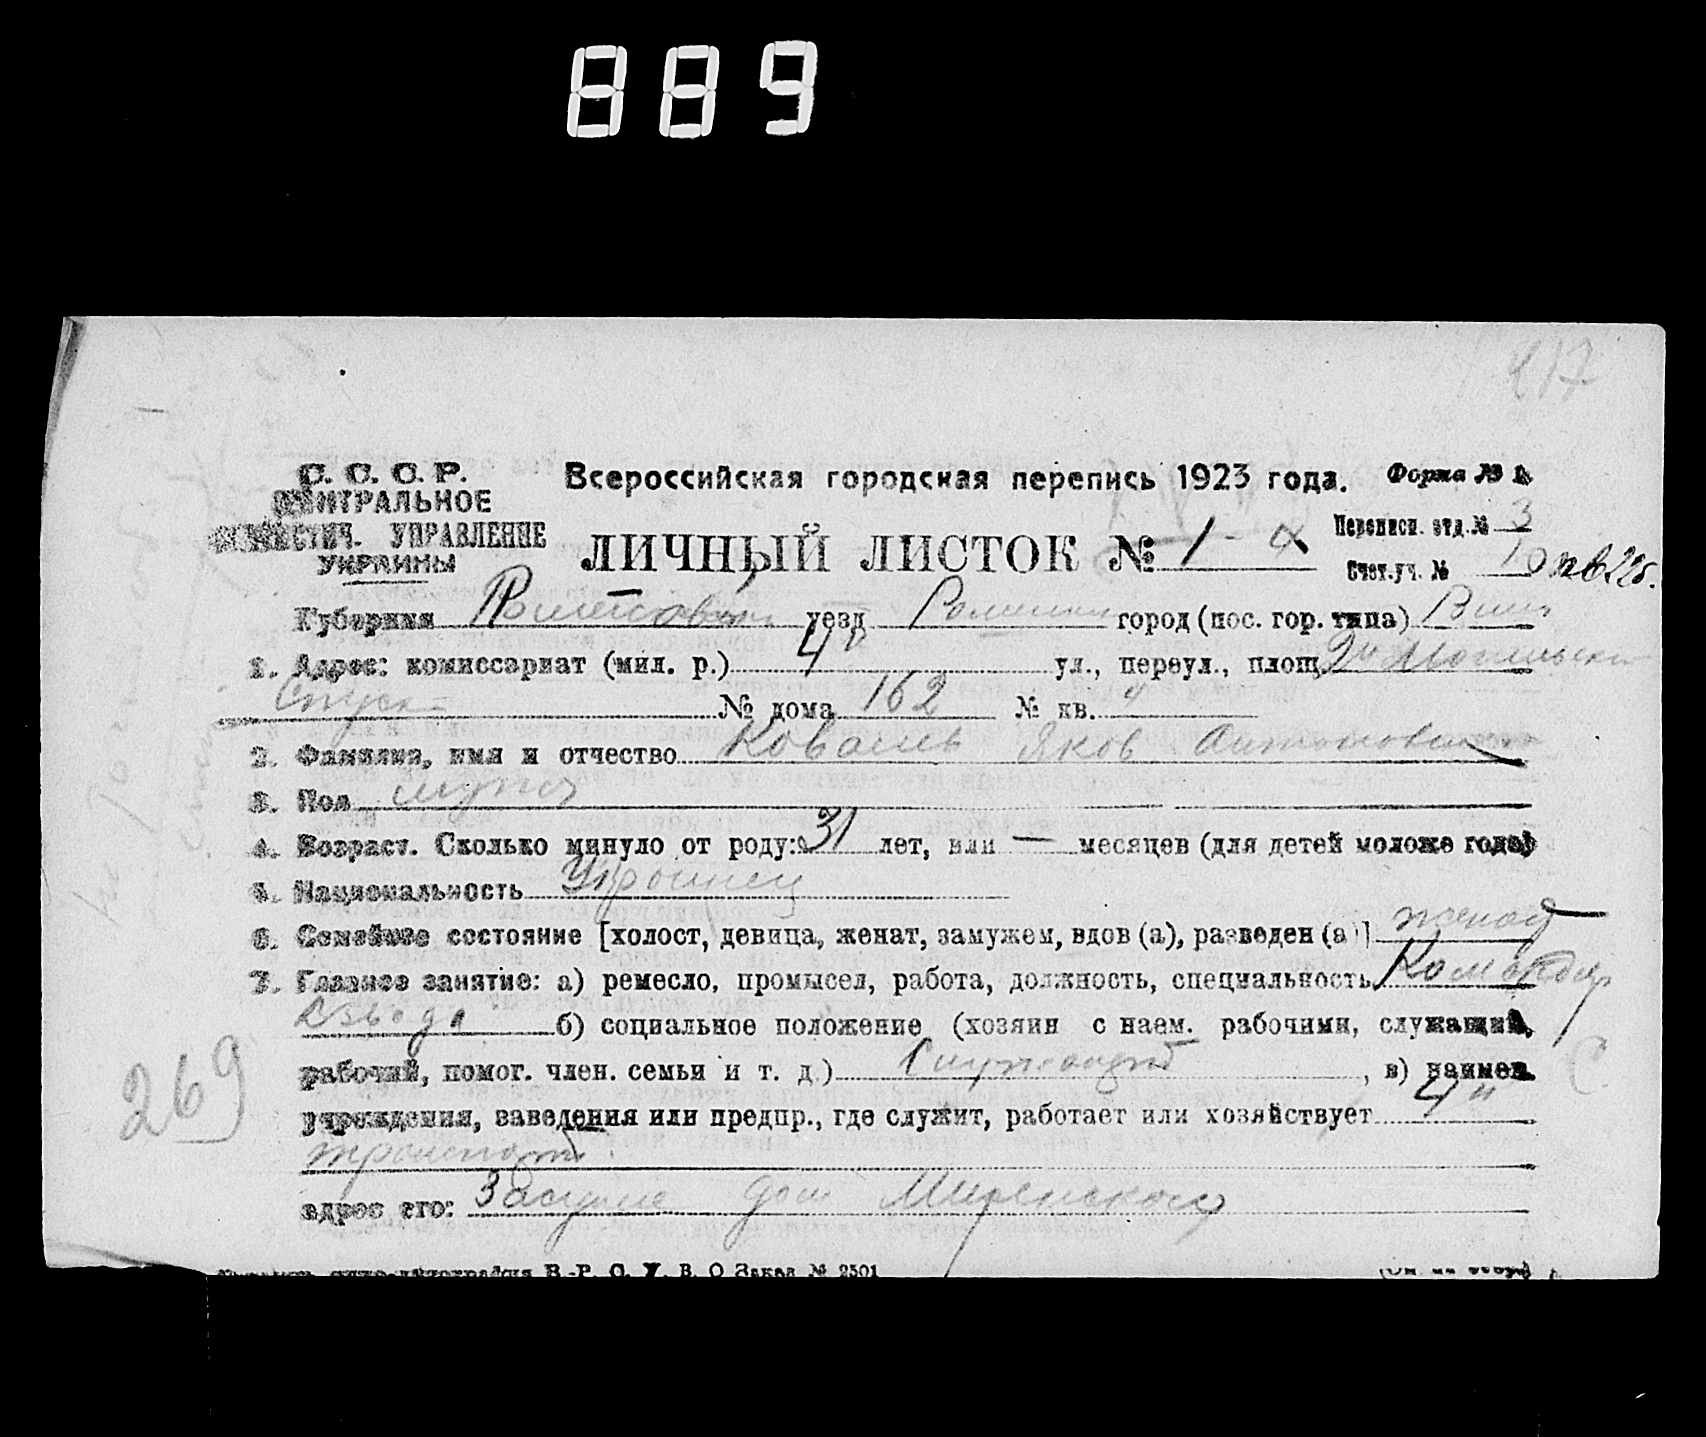 889
217
С. С. С. Р.
ЦЕНТРАЛЬНОЕ
СТАТИСТИЧ. УПРАВЛЕНИЕ
УКРАИНЫ
Всероссийская городская перепись 1923 года.
Форма № 1.
ЛИЧНЫЙ ЛИСТОК № 1-а
Переписн. отд. № 3
Счет. уч. № 10
Губерния уезд город (пос. гор. типа)
1. Адрес: комиссариат (мил. р.) 4й ул., переул., площ. 2й
Спуск № дома 162 № кв. 4
2. Фамилия, имя и отчество Коваль Яков Антонович
3. Пол мужс
4. Возраст. Сколько минуло от роду: 31 лет, или — месяцев (для детей моложе года)
5. Национальность Украинец
6. Семейное состояние [холост, девица, женат, замужем, вдов (а), разведен (а)] женат
7. Главное занятие: а) ремесло, промысел, работа, должность, специальность Командир
взвода б) социальное положение (хозяин с наем. рабочими, служащий,
рабочий, помог. член. семьи и т. д.) Служащий, в) наимен.
269
учреждения, заведения или предпр., где служит, работает или хозяйствует 4й
транспорт.
адрес его: Засулье дом
В.-Р. С. У. В. О Заказ № 2501